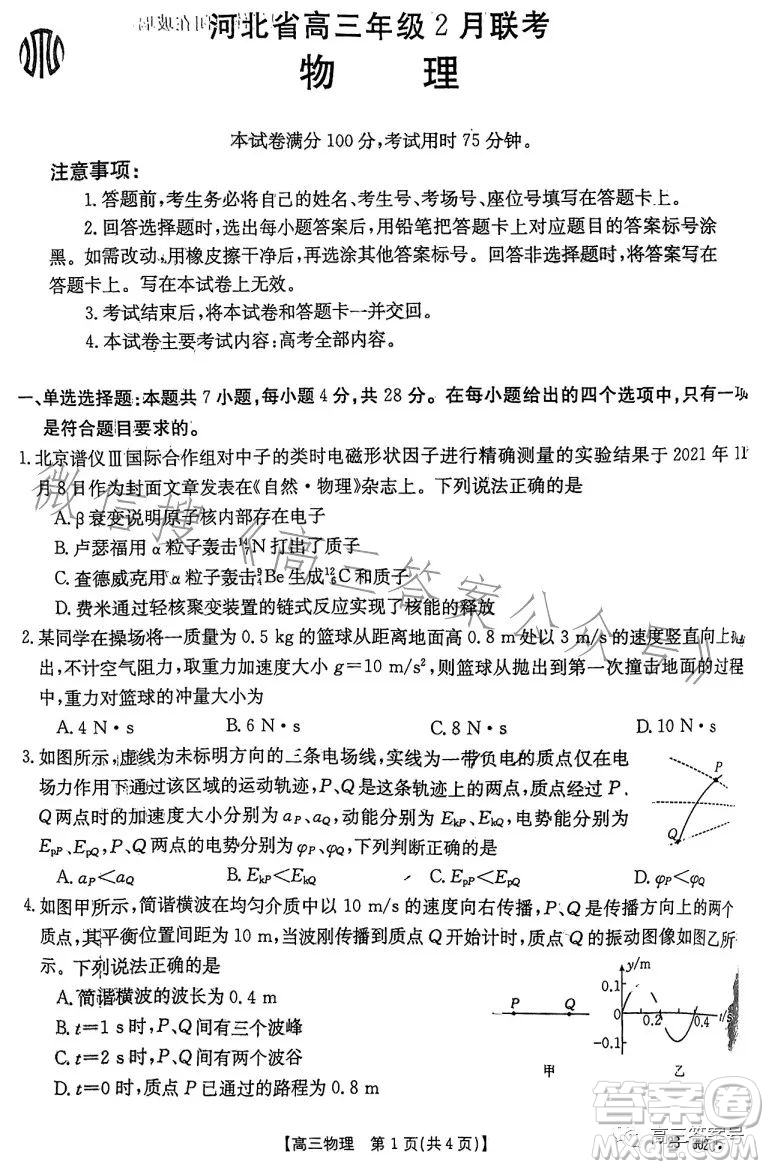 河北省高三年级2月联考
物 理
本试卷满分100分,考试用时75分钟。
注意事项:
1.答题前,考生务必将自己的姓名、考生号、考场号、座位号填写在答题卡上。
2.回答选择题时,选出每小题答案后,用铅笔把答题卡上对应题目的答案标号涂
黑。如需改动,用橡皮擦干净后,再选涂其他答案标号。回答非选择题时,将答案写在
答题卡上。写在本试卷上无效。
3.考试结束后,将本试卷和答题卡一并交回。
4.本试卷主要考试内容:高考全部内容。
一、单选选择题:本题共7小题,每小题4分,共28分。在每小题给出的四个选项中,只有一项
是符合题目要求的。
1.北京谱仪Ⅲ国际合作组对中子的类时电磁形状因子进行精确测量的实验结果于2021年11
月8日作为封面文章发表在《自然·物理》杂志上。下列说法正确的是
A.β衰变说明原子核内部存在电子
B.卢瑟福用α粒子轰击¹⁴₇N打出了质子
C.查德威克用α粒子轰击⁹₄Be生成¹²₆C和质子
D.费米通过轻核聚变装置的链式反应实现了核能的释放
2.某同学在操场将一质量为0.5 kg的篮球从距离地面高0.8 m处以3 m/s的速度竖直向上抛
出,不计空气阻力,取重力加速度大小g=10 m/s²,则篮球从抛出到第一次撞击地面的过程
中,重力对篮球的冲量大小为
A.4 N·s B.6 N·s C.8 N·s D.10 N·s
3.如图所示,虚线为未标明方向的三条电场线,实线为一带负电的质点仅在电
场力作用下通过该区域的运动轨迹,P、Q是这条轨迹上的两点。质点经过P、
Q两点时的加速度大小分别为aP、aQ,动能分别为EkP、EkQ,电势能分别为
EpP、EpQ,P、Q两点的电势分别为φP、φQ,下列判断正确的是
A.aP<aQ B.EkP<EkQ C.EpP<EpQ D.φP<φQ
P
Q
4.如图甲所示,简谐横波在均匀介质中以10 m/s的速度向右传播,P、Q是传播方向上的两个
质点,其平衡位置间距为10 m,当波刚传播到质点Q开始计时,质点Q的振动图像如图乙所
示。下列说法正确的是
A.简谐横波的波长为0.4 m
B.t=1 s时,P、Q间有三个波峰
C.t=2 s时,P、Q间有两个波谷
D.t=0时,质点P已通过的路程为0.8 m
P Q
甲
y/m
0.1
0
0.2 0.4 t/s
-0.1
乙
【高三物理 第1页(共4页)】
微信搜《高三答案公众号》
答案卷
高三答案号